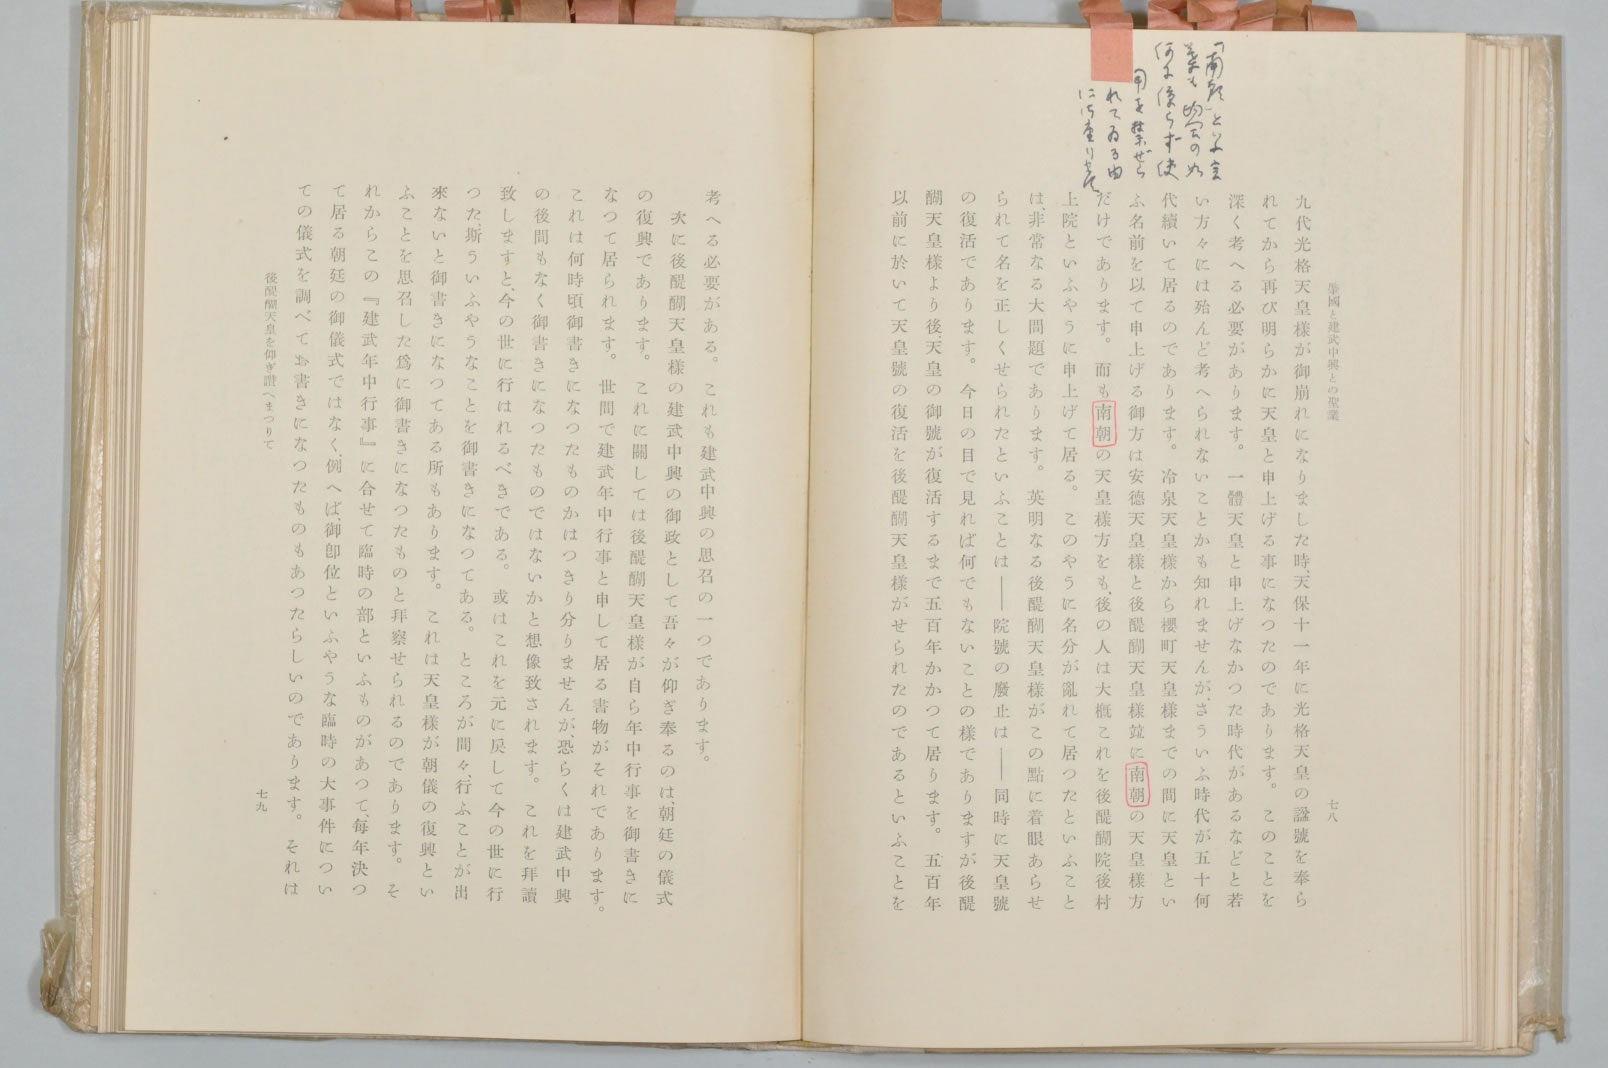 肇國と建武中興との聖業
七八
「南朝」といふ言
葉も
何に依らず使
用を禁ぜら
れてゐる由
九代光格天皇樣が御崩れになりました時、天保十一年に光格天皇の諡號を奉ら
れてから再び明らかに天皇と申上げる事になつたのであります。このことを
深く考へる必要があります。一體天皇と申上げなかつた時代があるなどと若
い方々には殆んど考へられないことかも知れませんが、さういふ時代が五十何
代續いて居るのであります。冷泉天皇樣から櫻町天皇樣までの間に天皇とい
ふ名前を以て申上げる御方は安德天皇樣と後醍醐天皇樣竝に南朝の天皇樣方
だけであります。而も南朝の天皇樣方をも、後の人は大槪これを後醍醐院、後村
上院といふやうに申上げて居る。このやうに名分が亂れて居つたといふこと
は、非常なる大問題であります。英明なる後醍醐天皇樣がこの點に着眼あらせ
られて名を正しくせられたといふことは――院號の廢止は――同時に天皇號
の復活であります。今日の目で見れば何でもないことの樣でありますが後醍
醐天皇樣より後、天皇の御號が復活するまで五百年かかつて居ります。五百年
以前に於いて天皇號の復活を後醍醐天皇樣がせられたのであるといふことを
考へる必要がある。これも建武中興の思召の一つであります。
次に後醍醐天皇樣の建武中興の御政として吾々が仰ぎ奉るのは、朝廷の儀式
の復興であります。これに關しては後醍醐天皇樣が自ら年中行事を御書きに
なつて居られます。世間で建武年中行事と申して居る書物がそれであります。
これは何時頃御書きになつたものかはつきり分りませんが、恐らくは建武中興
の後間もなく御書きになつたものではないかと想像致されます。これを拜讀
致しますと、今の世に行はれるべきである。或はこれを元に戾して今の世に行
つた、斯ういふやうなことを御書きになつてある。ところが間々、行ふことが出
來ないと御書きになつてある所もあります。これは天皇樣が朝儀の復興とい
ふことを思召した爲に御書きになつたものと拜察せられるのであります。そ
れからこの『建武年中行事』に合せて臨時の部といふものがあつて、每年決つ
て居る朝廷の御儀式ではなく、例へば、御卽位といふやうな臨時の大事件につい
ての儀式を調べてお書きになつたものもあつたらしいのであります。それは
後醍醐天皇を仰ぎ讚へまつりて
七九